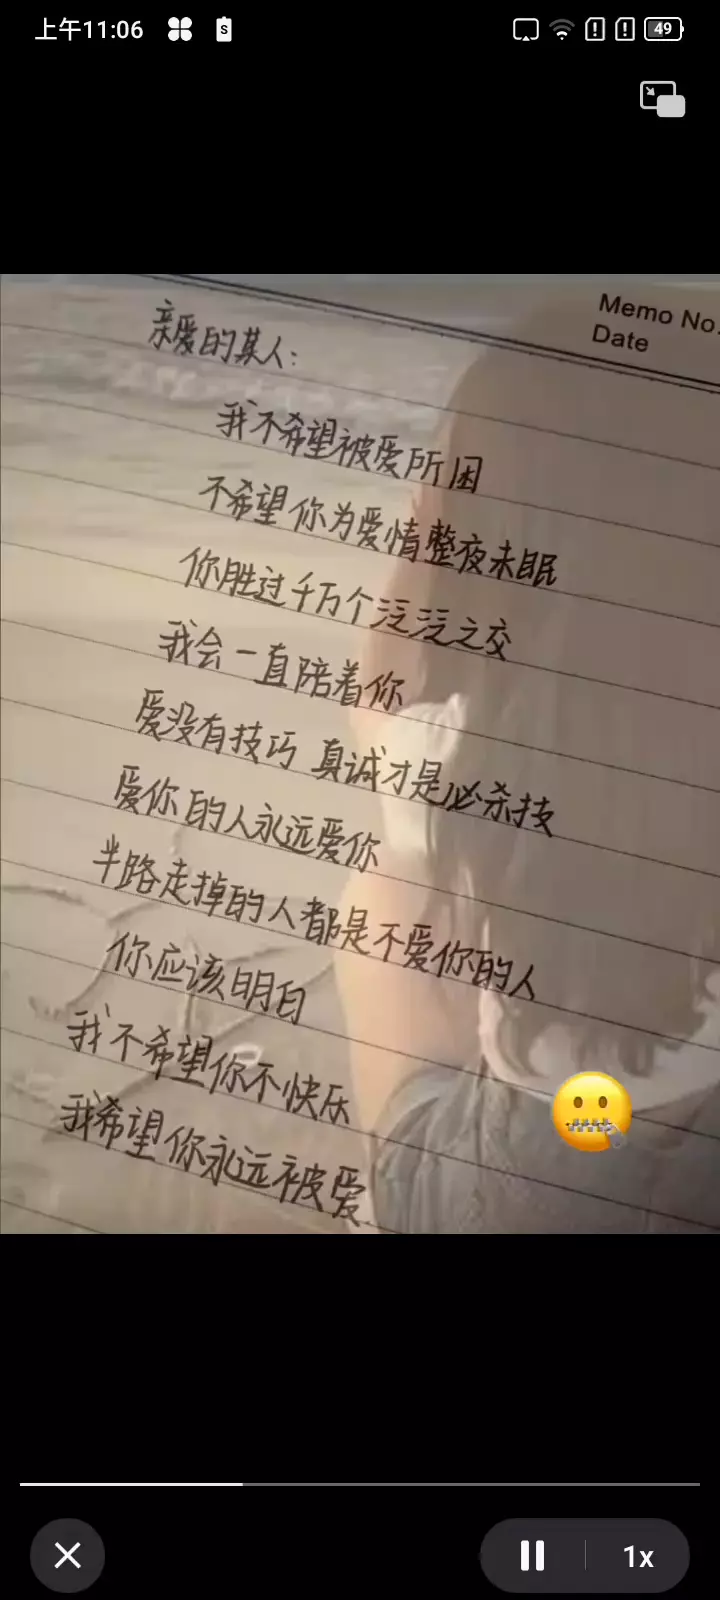 上午11:06
49
Memo No.
Date
亲爱的某人:
我不希望被爱所困
不希望你为爱情整夜未眠
你胜过千万个泛泛之交
我会一直陪着你
爱没有技巧 真诚才是必杀技
爱你的人永远爱你
半路走掉的人都是不爱你的人
你应该明白
我不希望你不快乐
我希望你永远被爱
1x